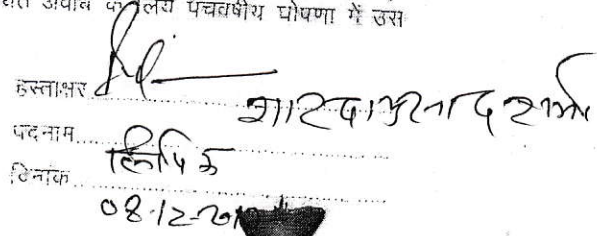 अवधि के लिये पंचवर्षीय घोषणा में उस
हस्ताक्षर
शारदा प्रसाद शर्मा
पदनाम
लिपिक
दिनांक
08-12-20